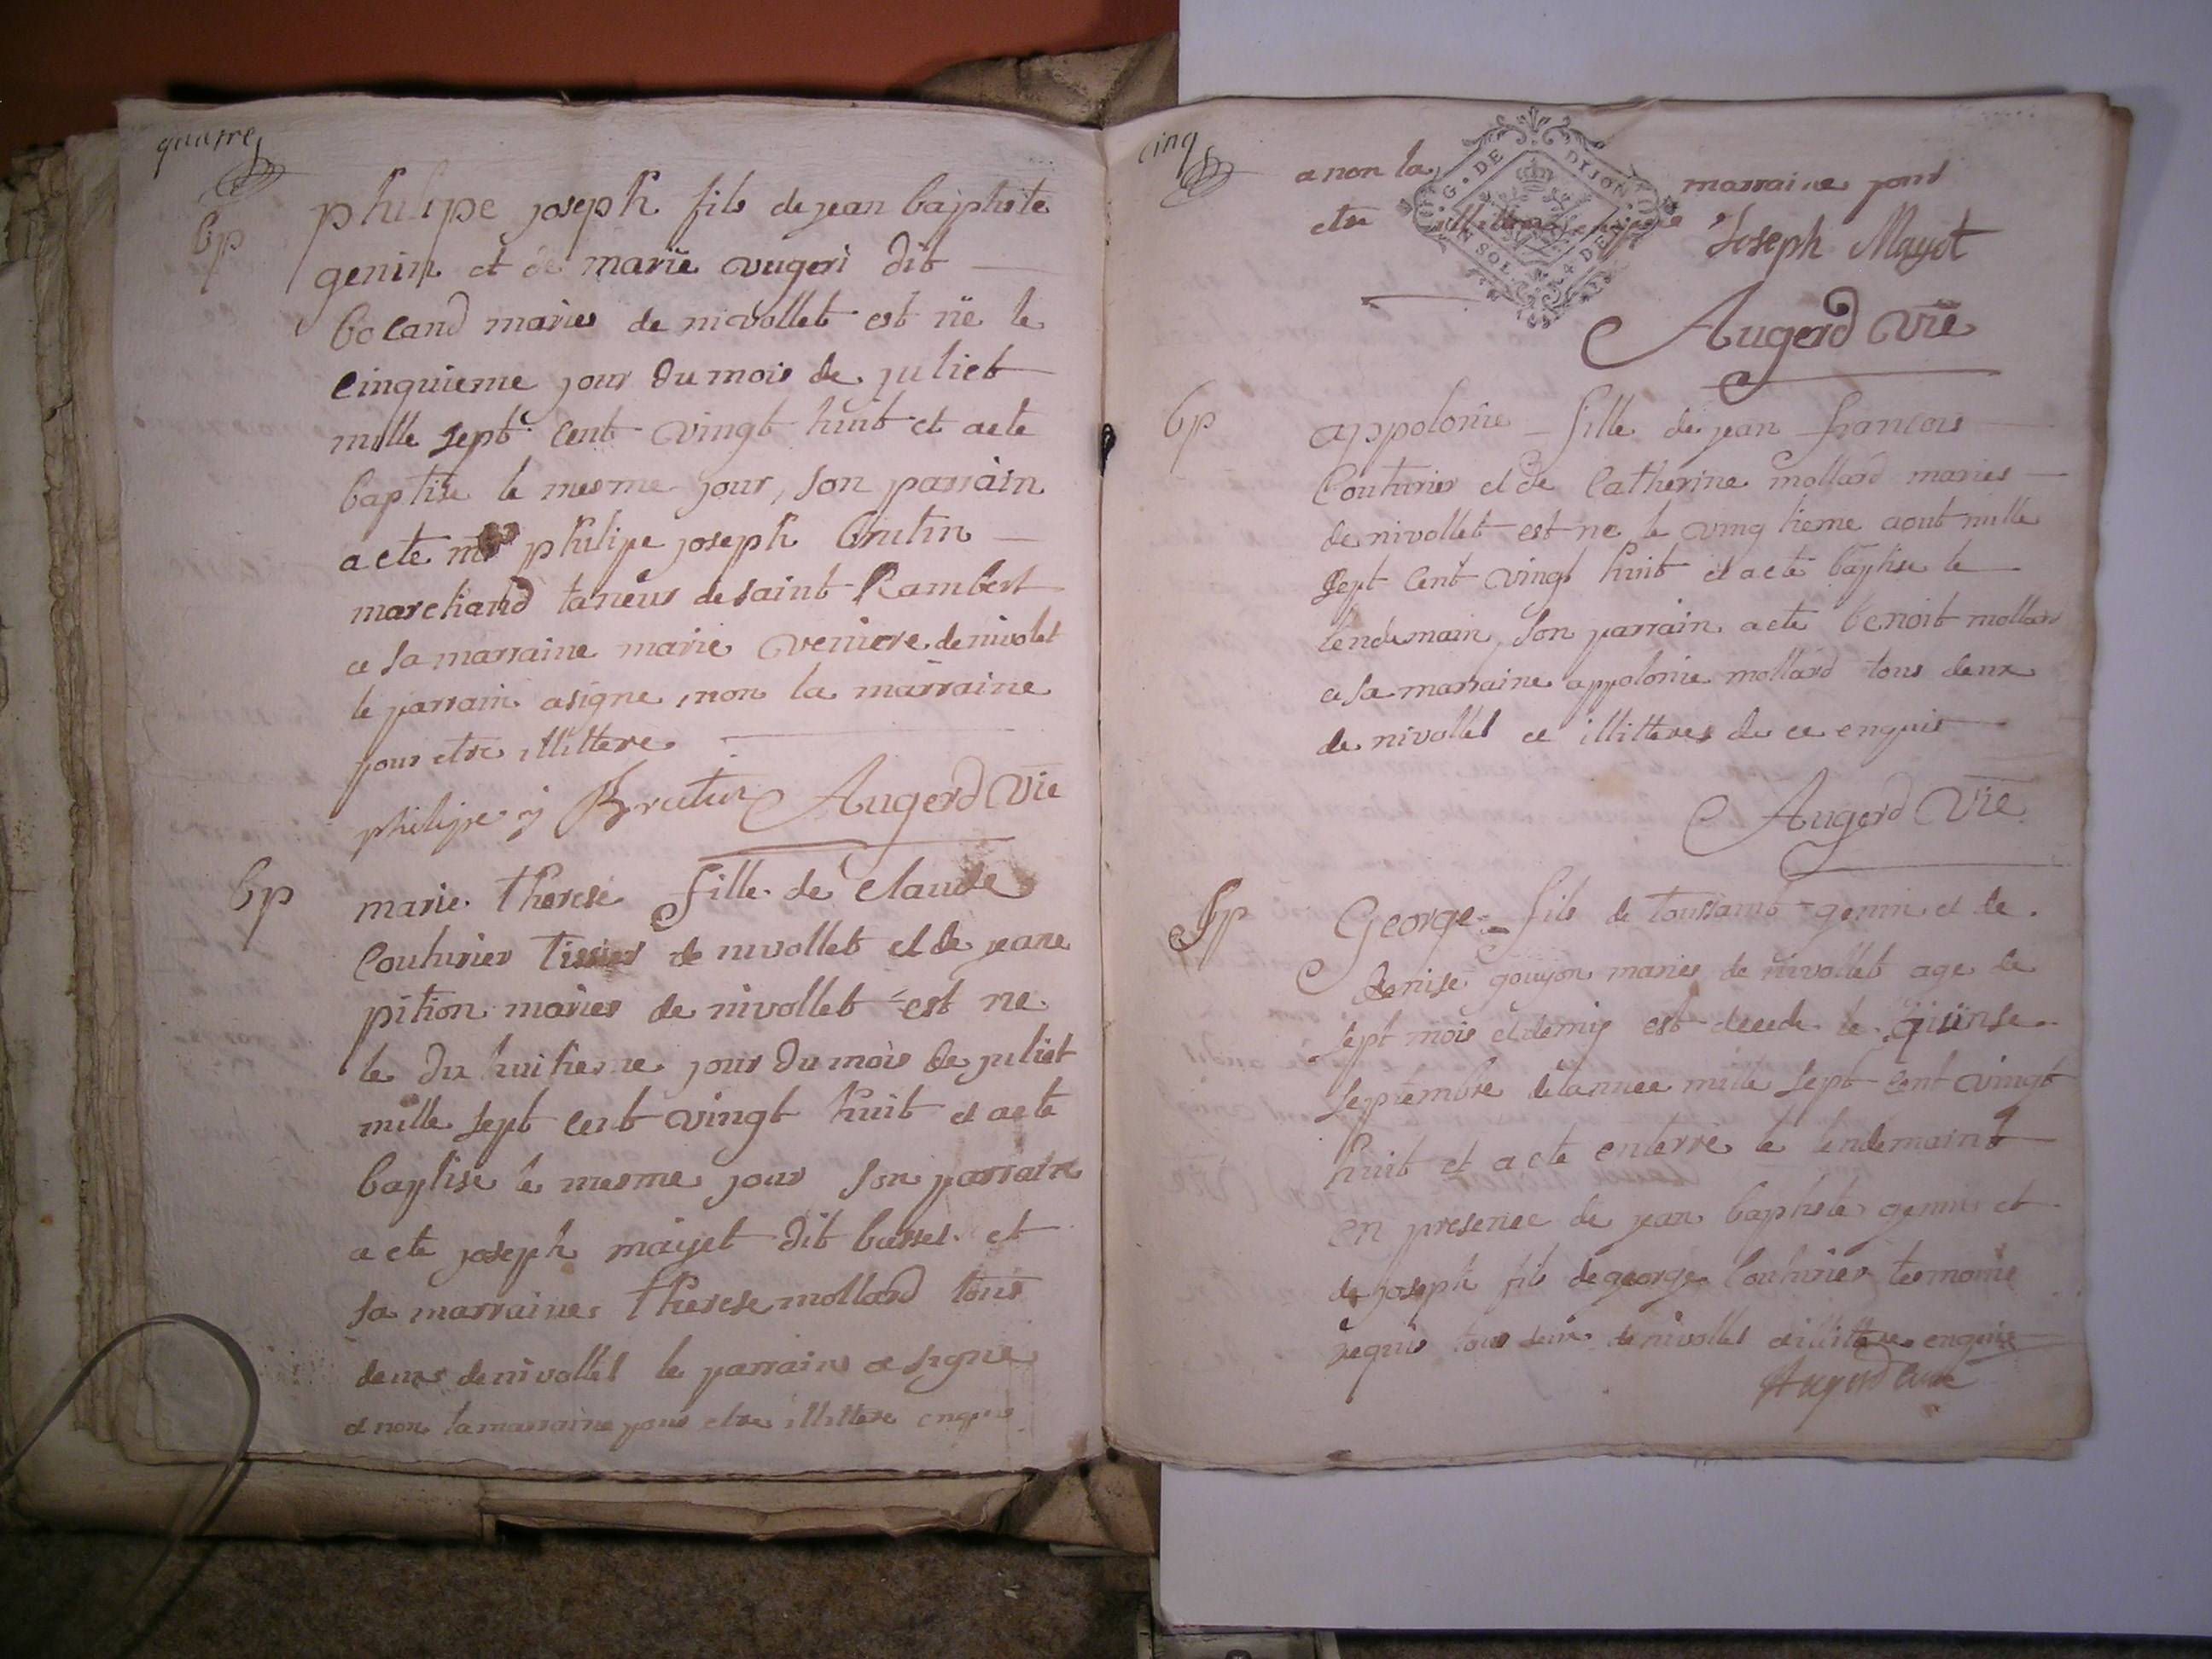 quatre
bp
philipe joseph fils de jean baptiste
genin et de marie vugeri dit
bocand maries de nivollet est né le
cinquieme jour du mois de juliet
mille sept cent vingt huit et aeté
baptise le mesme jour, son parrain
aeté mr philipe joseph brutin
marchand taneur de saint Rambert
et sa marraine marie veniere de nivolet
le parrain a signe, non la marraine
pour etre illittere
philipe j Brutin Augerd Vic
bp
marie therese fille de claude
couturier tissier de nivollet et de jeane
pition maries de nivollet est ne
le dix huitieme jour du mois de juliet
mille sept cent vingt huit et aeté
baptise le mesme jour son parrain
aeté joseph mayet dit bussel et
sa marraine therese mollard tous
deux de nivollet le parrain a signe
et non la marraine pour etre illittere enquis
cinq
a non la marraine pour
etre illittere Joseph Mayot
G. DE DIJON
UN SOL 4 DEN
Augerd Vic
bp
appolonie fille de jean francois
Couturier et de Catherine mollard maries
de nivollet est ne le vingtieme aout mille
sept cent vingt huit et aeté baptise le
lendemain, son parrain aeté benoit mollard
et sa marraine appolonie mollard tous deux
de nivollet et illitteres de ce enquis
Augerd Vic
Sp
George fils de toussaint genin et de
denise goujon maries de nivollet age de
sept mois et demis est decede le quinse
septembre de lannee mille sept cent vingt
huit et aeté enterré le lendemain
en presence de jean baptiste genin et
de joseph fils de george couturier tesmoins
requis tous deux de nivollet et illittere enquis
Augerd curé